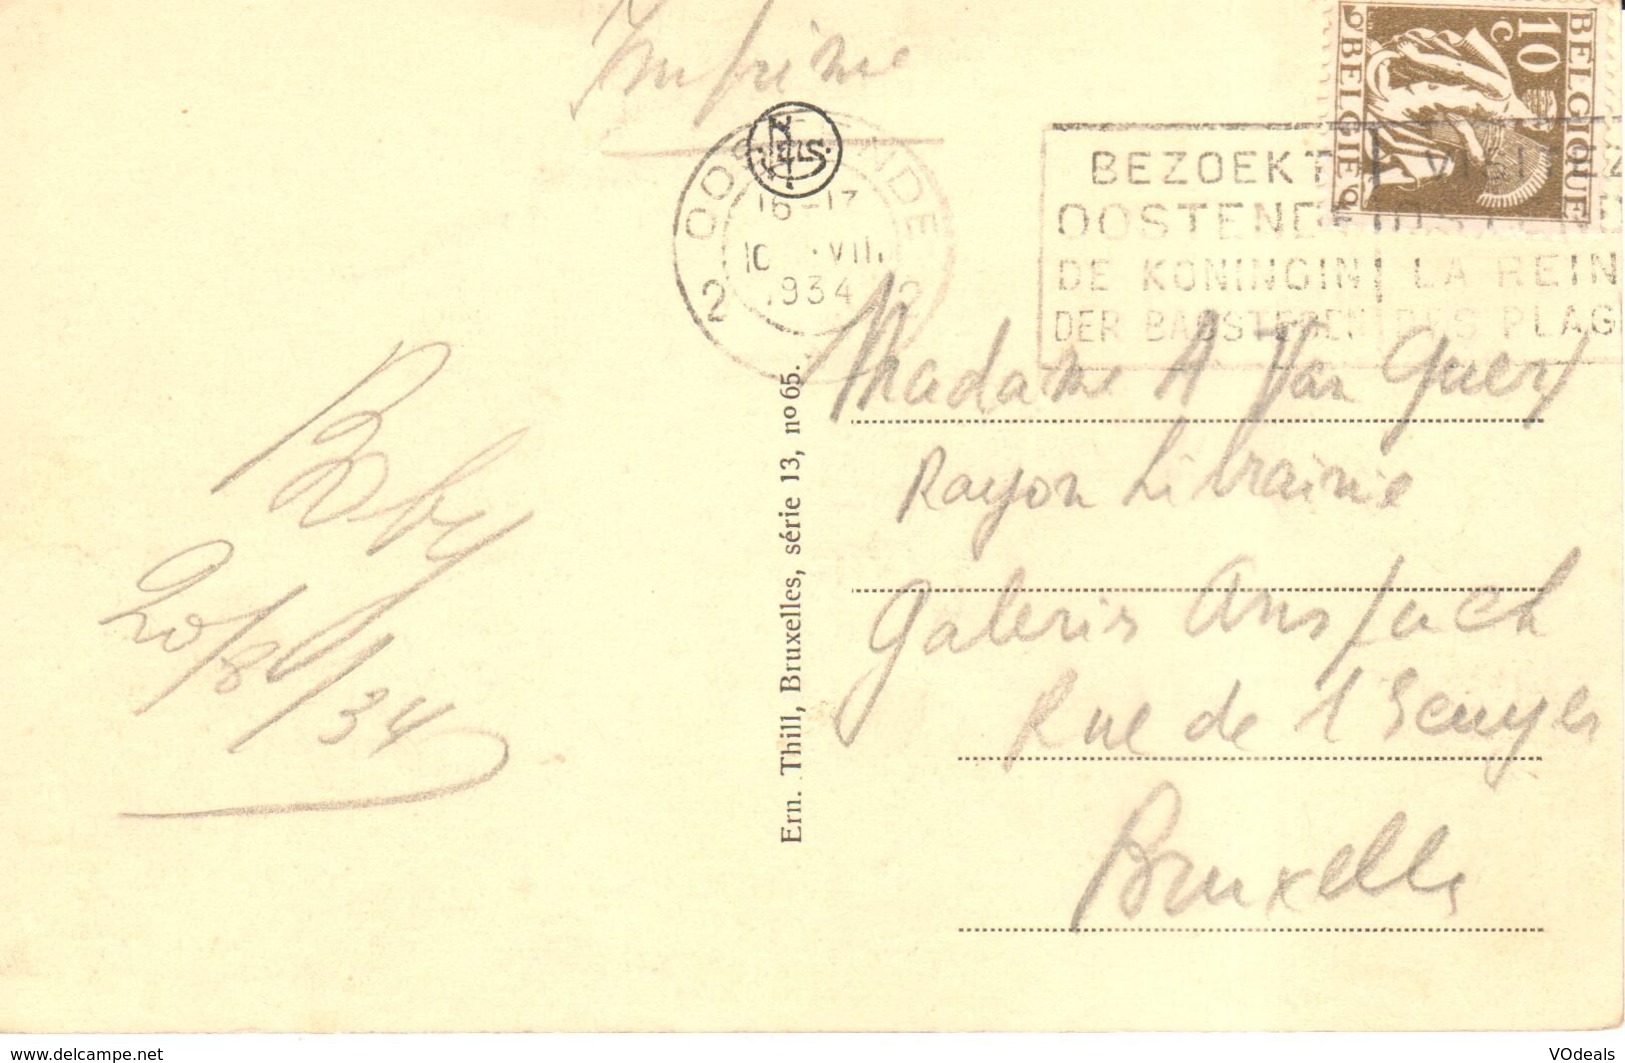 Imprimé
BELGIQUE
10 c
BELGIE
NELS
OOSTENDE
16-17
10 VIII
1934
2 2
BEZOEKT
OOSTENDE
DE KONINGIN
DER BADSTEDEN
VISITEZ
OSTENDE
LA REIN
DES PLAG
Baby
20/8/34
Ern. Thill, Bruxelles, série 13, no 65.
Madame A Van
Rayon Librairie
Galeries Anspach
Rue de l'
Bruxelles
www.delcampe.net
VOdeals